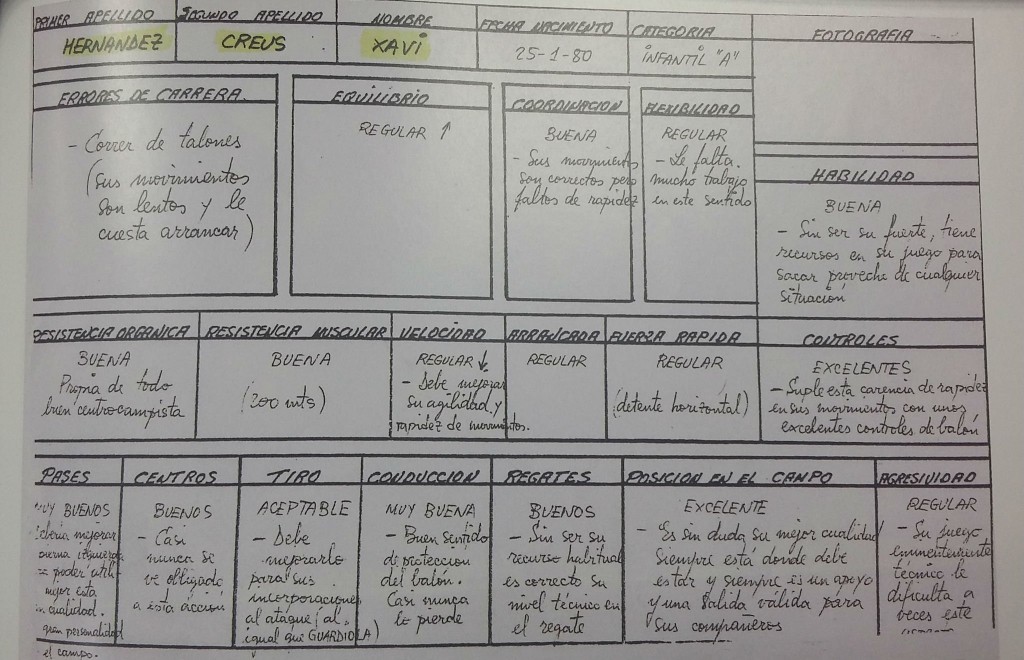 PRIMER APELLIDO
HERNANDEZ
SEGUNDO APELLIDO
CREUS
NOMBRE
XAVI
FECHA NACIMIENTO
25-1-80
CATEGORIA
INFANTIL "A"
FOTOGRAFIA
ERRORES DE CARRERA
- Correr de talones
(sus movimientos
son lentos y le
cuesta arrancar)
EQUILIBRIO
REGULAR ↑
COORDINACION
BUENA
- Sus movimientos
son correctos pero
faltos de rapidez
FLEXIBILIDAD
REGULAR
- Le falta
mucho trabajo
en este sentido
HABILIDAD
BUENA
- Sin ser su fuerte, tiene
recursos en su juego para
sacar provecho de cualquier
situación
RESISTENCIA ORGANICA
BUENA
Propia de todo
buen centrocampista
RESISTENCIA MUSCULAR
BUENA
(200 mts)
VELOCIDAD
REGULAR ↓
- Debe mejorar
su agilidad y
rapidez de movimientos.
ARRANCADA
REGULAR
FUERZA RAPIDA
REGULAR
(detente horizontal)
CONTROLES
EXCELENTES
- Suple esta carencia de rapidez
en sus movimientos con unos
excelentes controles de balón
PASES
MUY BUENOS
debería mejorar
pierna izquierda
poder utili-
mejor esta
cualidad.
gran personalidad
el campo.
CENTROS
BUENOS
- Casi
nunca se
ve obligado
a esta acción
TIRO
ACEPTABLE
- Debe
mejorarlo
para sus
incorporaciones
al ataque (al
igual que GUARDIOLA)
CONDUCCION
MUY BUENA
- Buen sentido
de protección
del balón.
Casi nunca
lo pierde
REGATES
BUENOS
- Sin ser su
recurso habitual
es correcto su
nivel técnico en
el regate
POSICION EN EL CAMPO
EXCELENTE
- Es sin duda su mejor cualidad
Siempre está donde debe
estar y siempre es un apoyo
y una salida válida para
sus compañeros
AGRESIVIDAD
REGULAR
- Su juego
eminentemente
técnico le
dificulta a
veces este